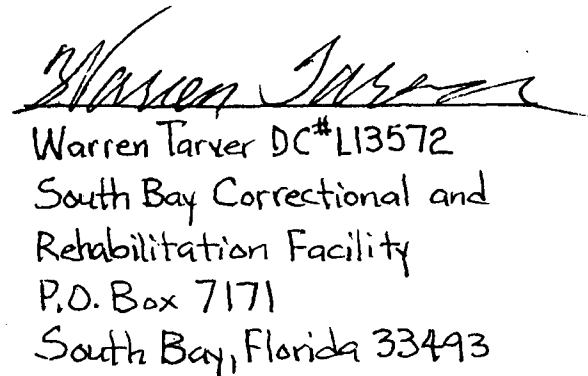 Warren Tarver
Warren Tarver DC#L13572
South Bay Correctional and
Rehabilitation Facility
P.O. Box 7171
South Bay, Florida 33493